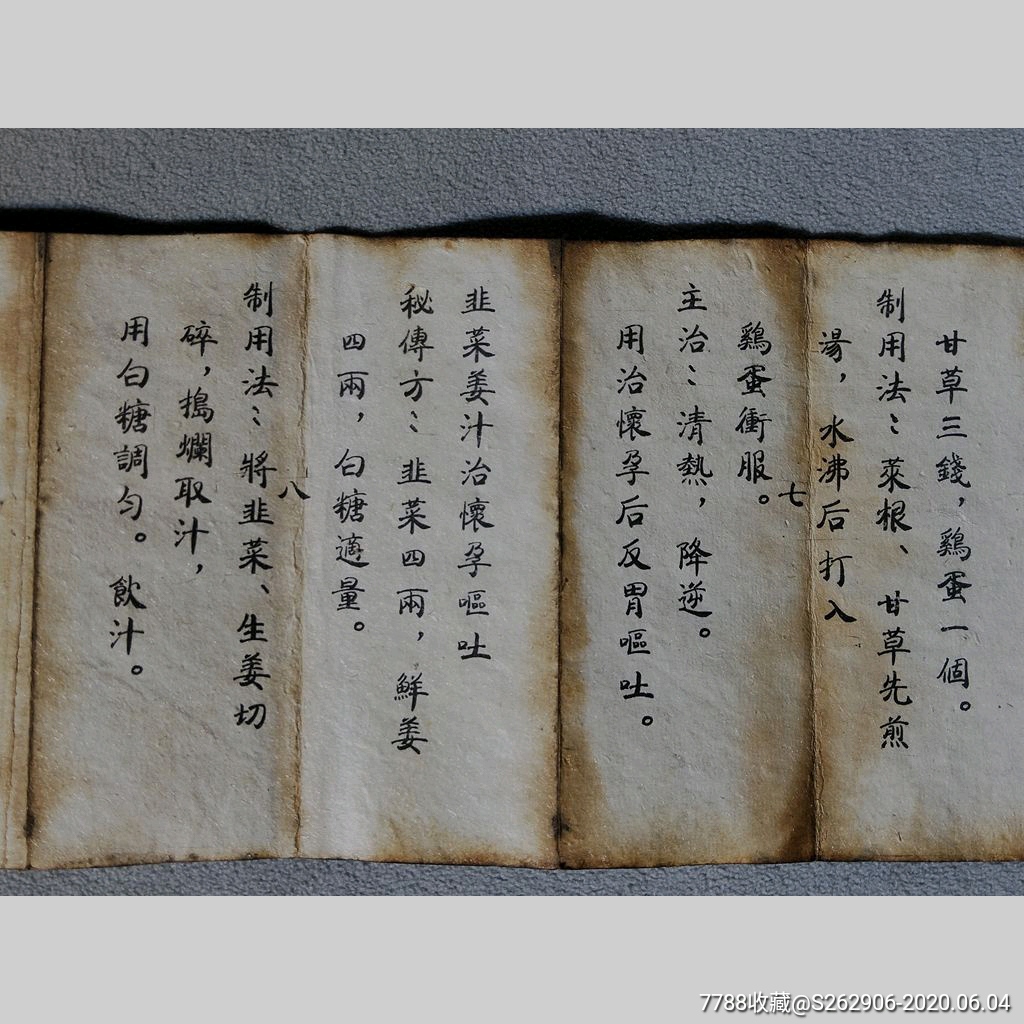 甘草三錢，鷄蛋一個。
制用法：萊根、甘草先煎
湯，水沸后打入
七
鷄蛋衝服。
主治：清熱，降逆。
用治懷孕后反胃嘔吐。
韭菜姜汁治懷孕嘔吐
秘傳方：韭菜四兩，鮮姜
四兩，白糖適量。
八
制用法：將韭菜、生姜切
碎，搗爛取汁，
用白糖調匀。飲汁。
7788收藏@S262906-2020.06.04